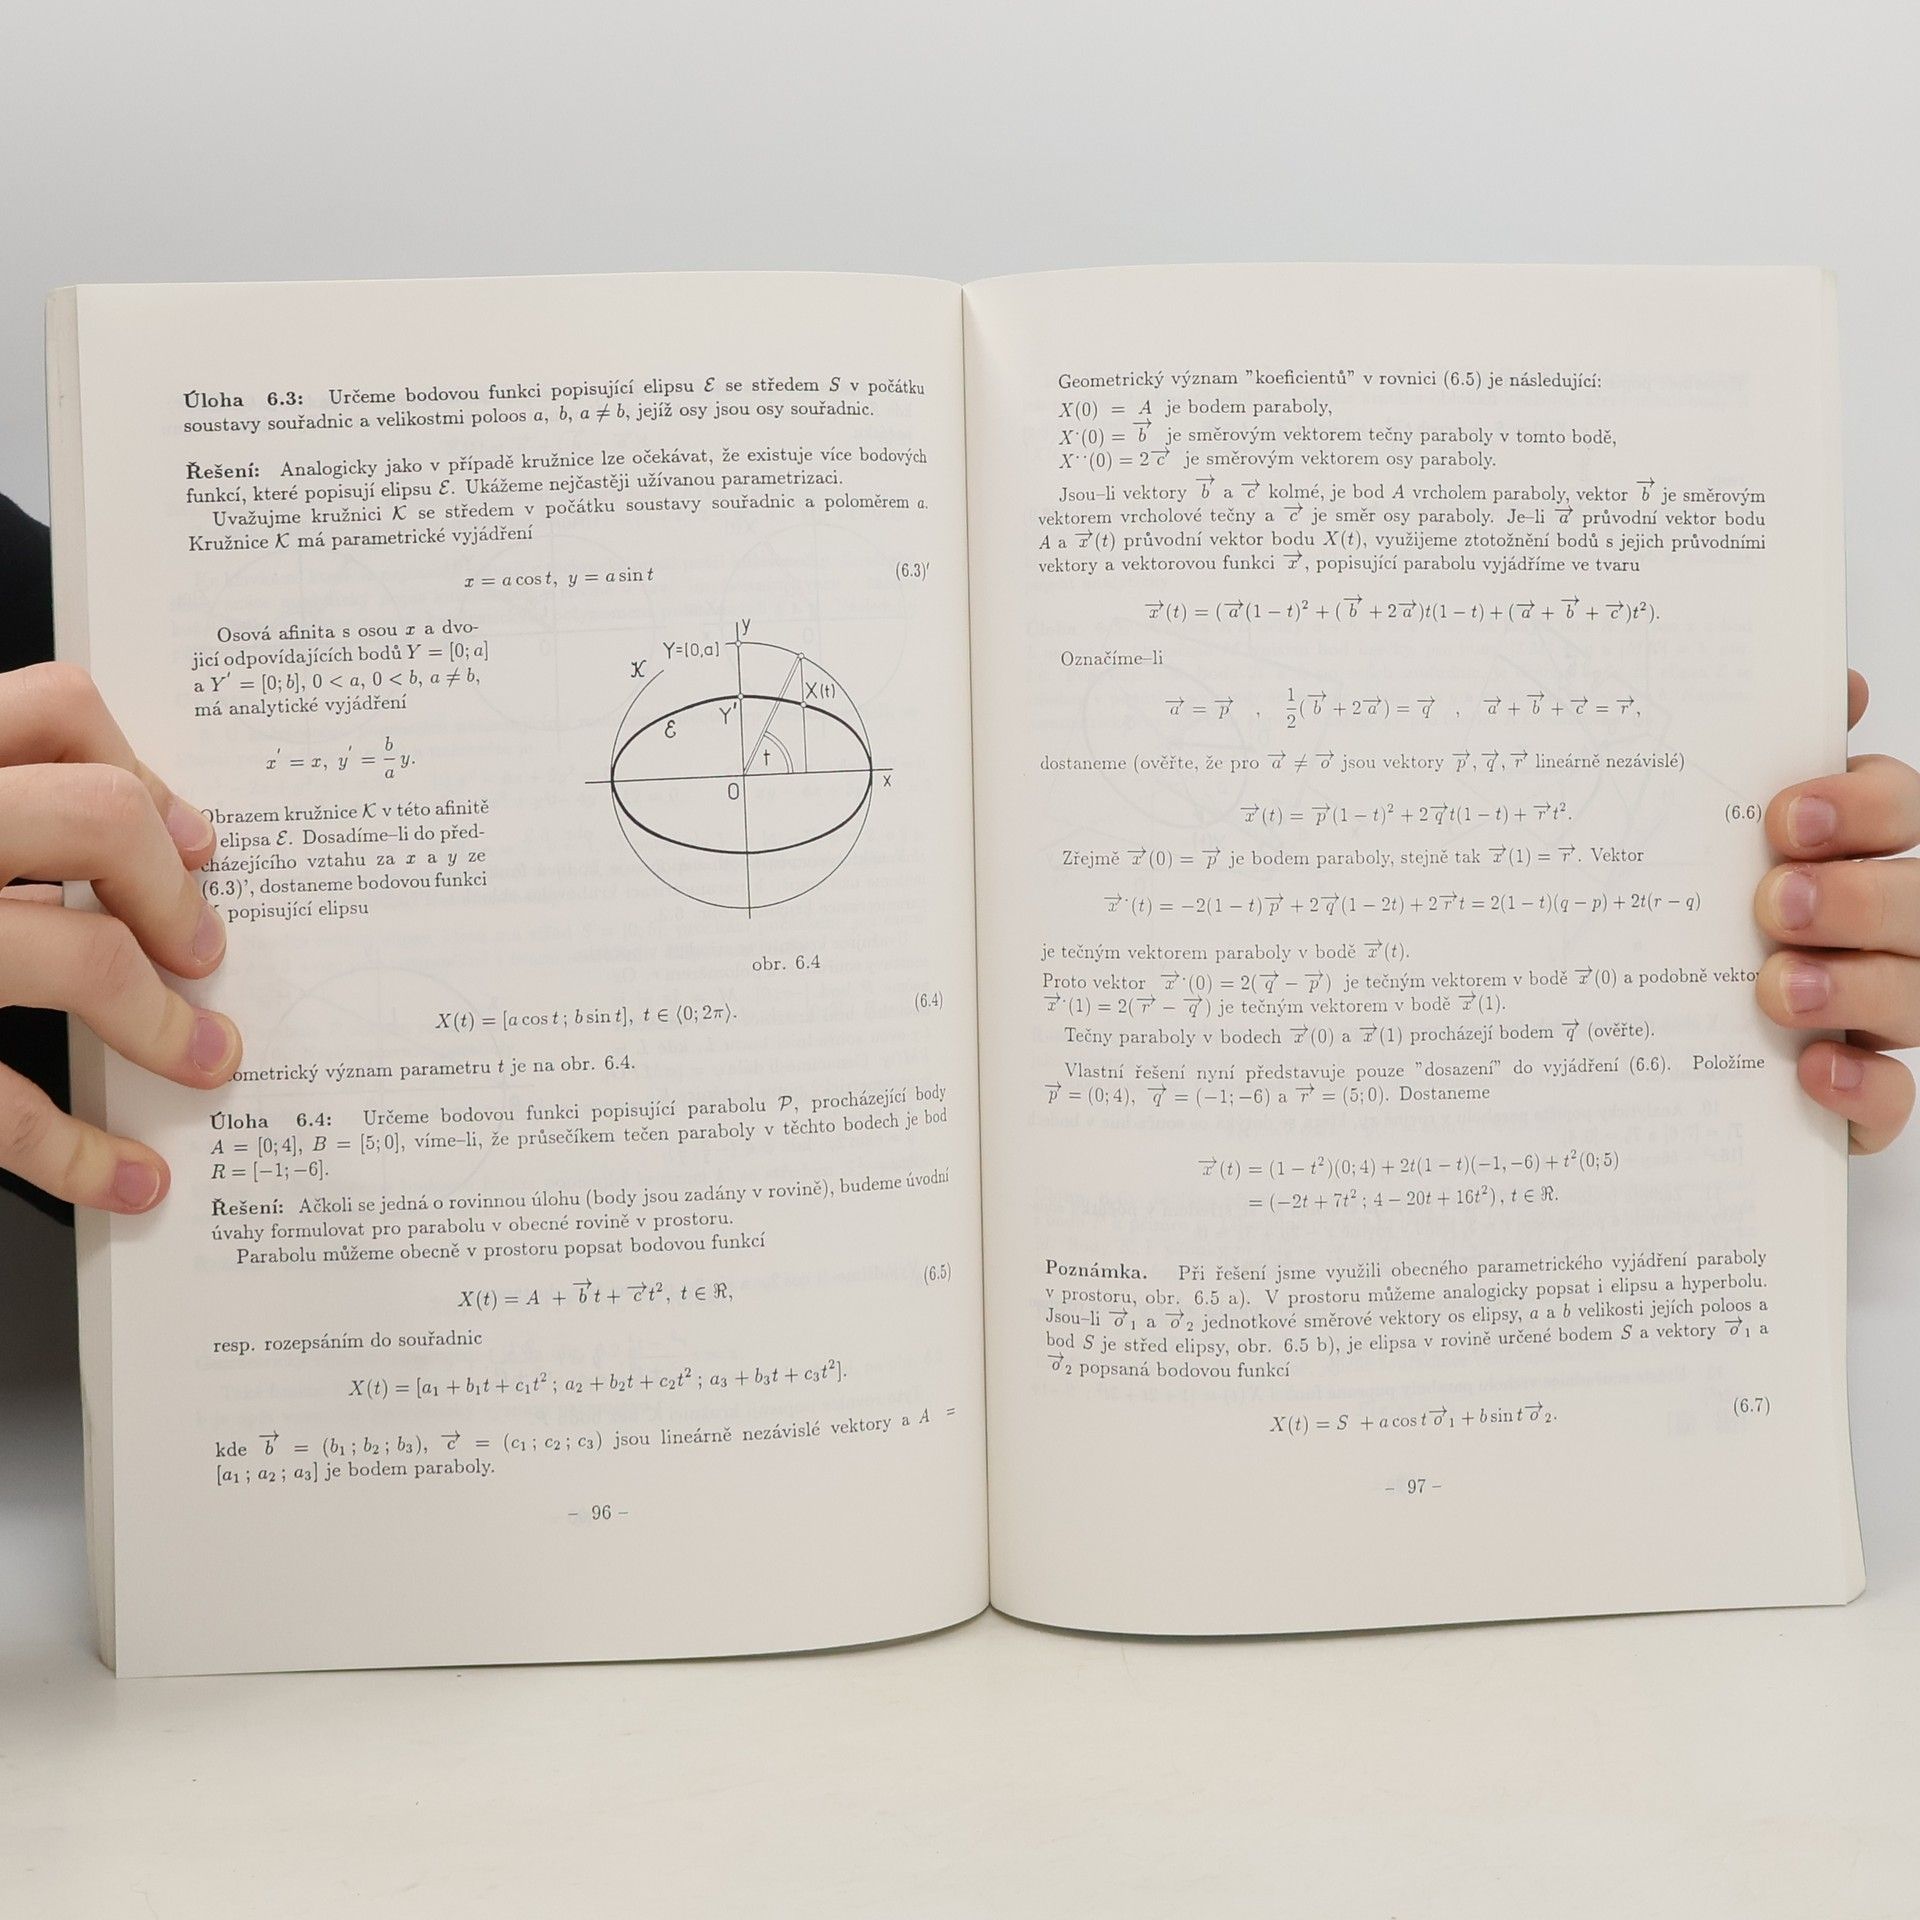 Úloha 6.3: Určeme bodovou funkci popisující elipsu ℰ se středem S v počátku
soustavy souřadnic a velikostmi poloos a, b, a ≠ b, jejíž osy jsou osy souřadnic.
Řešení: Analogicky jako v případě kružnice lze očekávat, že existuje více bodových
funkcí, které popisují elipsu ℰ. Ukážeme nejčastěji užívanou parametrizaci.
Uvažujme kružnici 𝒦 se středem v počátku soustavy souřadnic a poloměrem a.
Kružnice 𝒦 má parametrické vyjádření
x = a cos t, y = a sin t (6.3)'
Osová afinita s osou x a dvo-
jicí odpovídajících bodů Y = [0; a]
a Y' = [0; b], 0 < a, 0 < b, a ≠ b,
má analytické vyjádření
x' = x, y' = b/a y.
Obrazem kružnice 𝒦 v této afinitě
elipsa ℰ. Dosadíme–li do před-
cházejícího vztahu za x a y ze
(6.3)', dostaneme bodovou funkci
popisující elipsu
y
Y=[0,a]
𝒦
X(t)
Y'
ℰ
t
x
0
obr. 6.4
X(t) = [a cos t ; b sin t], t ∈ ⟨0; 2π⟩. (6.4)
ometrický význam parametru t je na obr. 6.4.
Úloha 6.4: Určeme bodovou funkci popisující parabolu 𝒫, procházející body
A = [0; 4], B = [5; 0], víme–li, že průsečíkem tečen paraboly v těchto bodech je bod
R = [−1; −6].
Řešení: Ačkoli se jedná o rovinnou úlohu (body jsou zadány v rovině), budeme úvodní
úvahy formulovat pro parabolu v obecné rovině v prostoru.
Parabolu můžeme obecně v prostoru popsat bodovou funkcí
X(t) = A + b⃗t + c⃗t², t ∈ ℜ, (6.5)
resp. rozepsáním do souřadnic
X(t) = [a₁ + b₁t + c₁t² ; a₂ + b₂t + c₂t² ; a₃ + b₃t + c₃t²].
kde b⃗ = (b₁ ; b₂ ; b₃), c⃗ = (c₁ ; c₂ ; c₃) jsou lineárně nezávislé vektory a A =
[a₁ ; a₂ ; a₃] je bodem paraboly.
– 96 –
Geometrický význam "koeficientů" v rovnici (6.5) je následující:
X(0) = A je bodem paraboly,
X˙(0) = b⃗ je směrovým vektorem tečny paraboly v tomto bodě,
X˙˙(0) = 2c⃗ je směrovým vektorem osy paraboly.
Jsou–li vektory b⃗ a c⃗ kolmé, je bod A vrcholem paraboly, vektor b⃗ je směrovým
vektorem vrcholové tečny a c⃗ je směr osy paraboly. Je–li a⃗ průvodní vektor bodu
A a x⃗(t) průvodní vektor bodu X(t), využijeme ztotožnění bodů s jejich průvodními
vektory a vektorovou funkci x⃗, popisující parabolu vyjádříme ve tvaru
x⃗(t) = (a⃗(1 − t)² + (b⃗ + 2a⃗)t(1 − t) + (a⃗ + b⃗ + c⃗)t²).
Označíme–li
a⃗ = p⃗ , 1/2(b⃗ + 2a⃗) = q⃗ , a⃗ + b⃗ + c⃗ = r⃗,
dostaneme (ověřte, že pro a⃗ ≠ o⃗ jsou vektory p⃗, q⃗, r⃗ lineárně nezávislé)
x⃗(t) = p⃗(1 − t)² + 2q⃗t(1 − t) + r⃗t². (6.6)
Zřejmě x⃗(0) = p⃗ je bodem paraboly, stejně tak x⃗(1) = r⃗. Vektor
x⃗˙(t) = −2(1 − t)p⃗ + 2q⃗(1 − 2t) + 2r⃗t = 2(1 − t)(q − p) + 2t(r − q)
je tečným vektorem paraboly v bodě x⃗(t).
Proto vektor x⃗˙(0) = 2(q⃗ − p⃗) je tečným vektorem v bodě x⃗(0) a podobně vektor
x⃗˙(1) = 2(r⃗ − q⃗) je tečným vektorem v bodě x⃗(1).
Tečny paraboly v bodech x⃗(0) a x⃗(1) procházejí bodem q⃗ (ověřte).
Vlastní řešení nyní představuje pouze "dosazení" do vyjádření (6.6). Položíme
p⃗ = (0; 4), q⃗ = (−1; −6) a r⃗ = (5; 0). Dostaneme
x⃗(t) = (1 − t²)(0; 4) + 2t(1 − t)(−1, −6) + t²(0; 5)
= (−2t + 7t² ; 4 − 20t + 16t²) , t ∈ ℜ.
Poznámka. Při řešení jsme využili obecného parametrického vyjádření paraboly
v prostoru, obr. 6.5 a). V prostoru můžeme analogicky popsat i elipsu a hyperbolu.
Jsou–li o⃗₁ a o⃗₂ jednotkové směrové vektory os elipsy, a a b velikosti jejích poloos a
bod S je střed elipsy, obr. 6.5 b), je elipsa v rovině určené bodem S a vektory o⃗₁ a
o⃗₂ popsaná bodovou funkcí
X(t) = S + a cos t o⃗₁ + b sin t o⃗₂. (6.7)
– 97 –